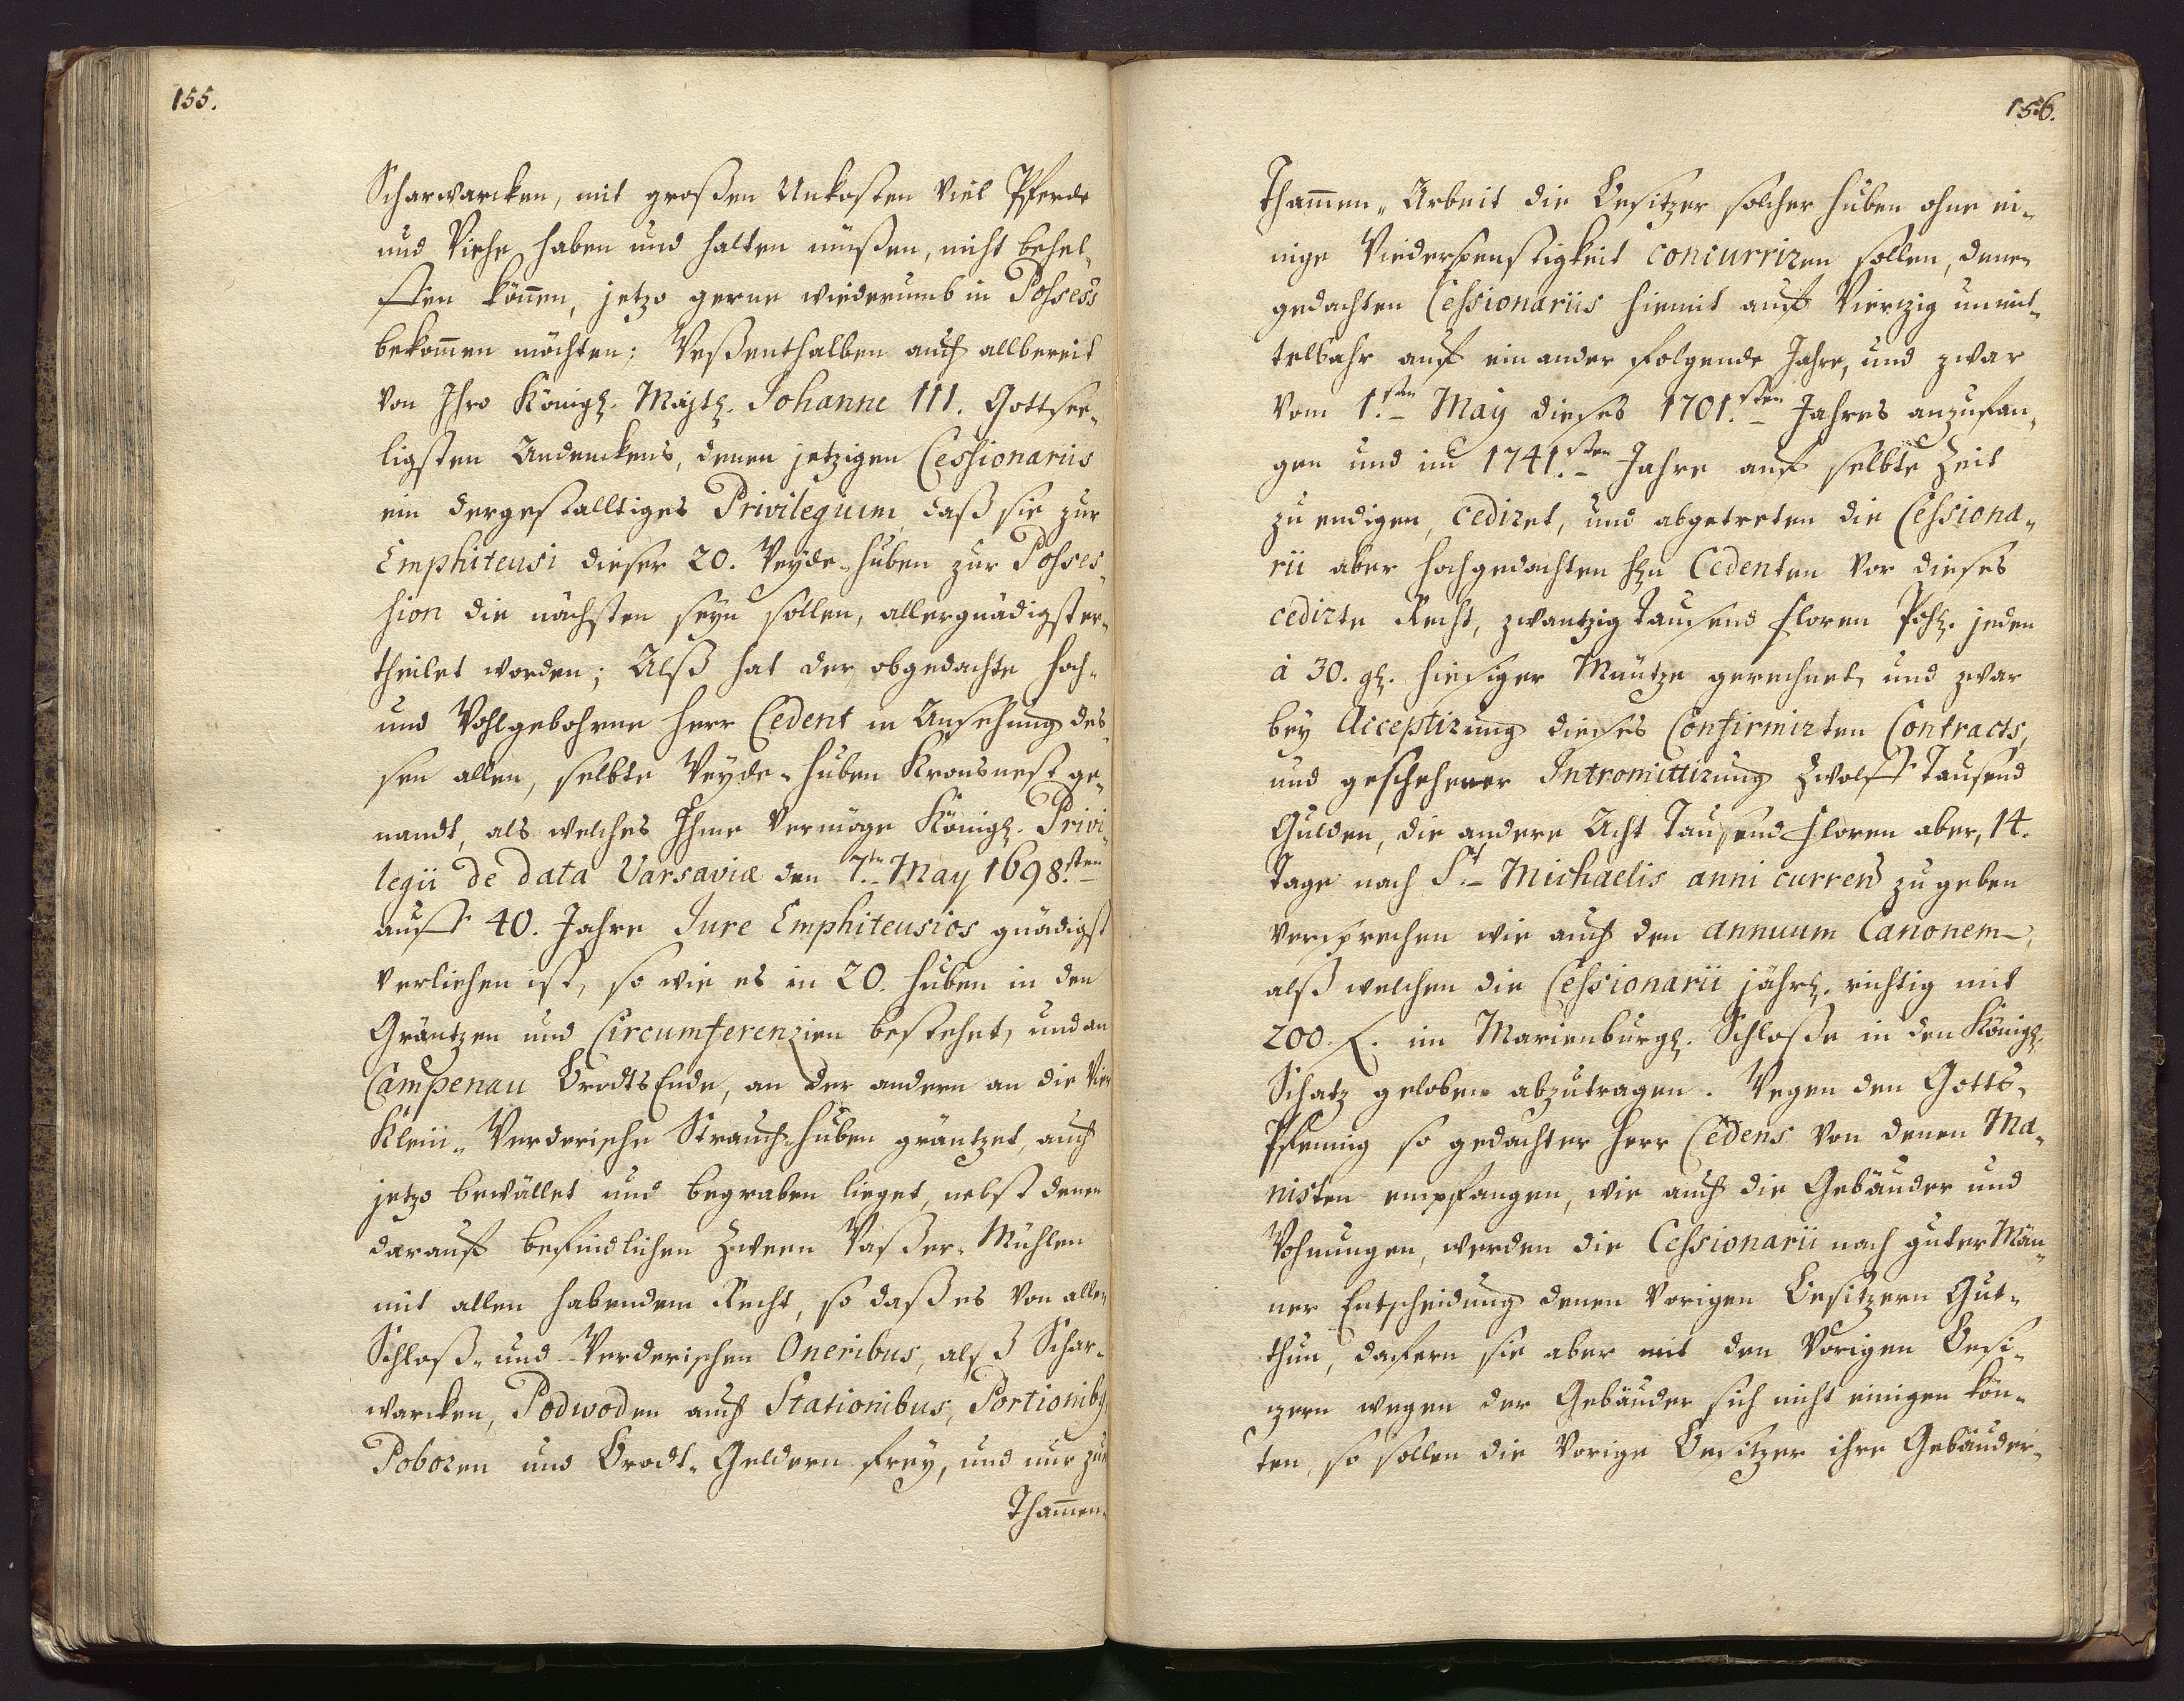 155.
Scharwarcken, mit großen Unkosten viel Pferde
und Viehe haben und halten müßen, nicht behel„
ffen können, jetzo gerne wiederumb in Possess
bekom̄en möchten; Weßenthalben auch allbereit
von Ihro Königl. Maytl. Johanne III. Gottsee„
ligsten Andenckens, denen jetzigen Cessionariis
ein dergestalltiges Privilegium, daß sie zur
Emphiteusi dieser 20. Weyde-huben zur Posses„
sion die nächsten seyn sollen, allergnädigst er„
theilet worden; Alß hat der obgedachte Hoch-
und Wohlgebohrne Herr Cedent in Ansehung des„
sen allen, selbte Weyde-huben Kronsnest ge„
nandt, als welches Ihme vermöge Königl. Privi„
legii de data Varsaviæ den 7.ten May 1698.sten
auff 40. Jahre Jure Emphiteusios gnädigst
verliehen ist, so wie es in 20. huben in den
Gräntzen und Circumferenzien bestehet, und an
Campenau BrodtsEnde, an der andern an die Vier
Klein„ Werderische Strauch-huben gräntzet, auch
jetzo bewället und begraben lieget, nebst denen
darauff befindlichen Zween Waßer-Mühlen
mit allen habendem Recht, so daß es von allen
Schloß- und Werderischen Oneribus, alß Schar„
warcken, Podwoden auch Stationibus, Portionibg
Poboren und Brodt„Geldern frey, und nur zur
Tham̄en„
156.
Tham̄en„Arbeit die Besitzer solcher huben ohne ei„
nige Wiederspenstigkeit concurriren sollen, denen
gedachten Cessionariis hiemit auff Viertzig unmit„
telbahr auff ein ander folgende Jahre, und zwar
vom 1.sten May dieses 1701.sten Jahres anzufan„
gen und im 1741.sten Jahre auff selbte Zeit
zu endigen, cediret, und abgetreten die Cessiona„
rii aber hochgedachten Hln Cedenten vor dieses
cedirte Recht, zwantzig Tausend floren Pohl. jeden
à 30. gl. hiesiger Müntze gerechnet, und zwar
bey Acceptirung dieses Confirmirten Contracts,
und geschehener Intromittirung Zwolff Tausend
Gulden, die andere Acht Tausend floren aber, 14.
Tage nach St. Michaelis anni currens zu geben
versprechen wie auch den annuum Canonem,
alß welchen die Cessionarii jährl. richtig mit
200. f. im Marienburgl. Schloße in den Königl.
Schatz geloben abzutragen. Wegen den Gotts„
Pfennig so gedachter Herr Cedens von denen Ma„
nisten empfangen, wie auch die Gebäuder und
Wohnungen, werden die Cessionarii nach guter Män„
ner Entscheidung denen vorigen Besitzern Gut„
thun, dafern sie aber mit den Vorigen Besi„
zern wegen der Gebäuder sich nicht einigen kön„
ten, so sollen die Vorige Besitzer ihre Gebäuder„